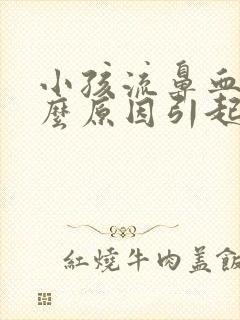 小孩流鼻血
麼原因引起
紅燒牛肉蓋飯